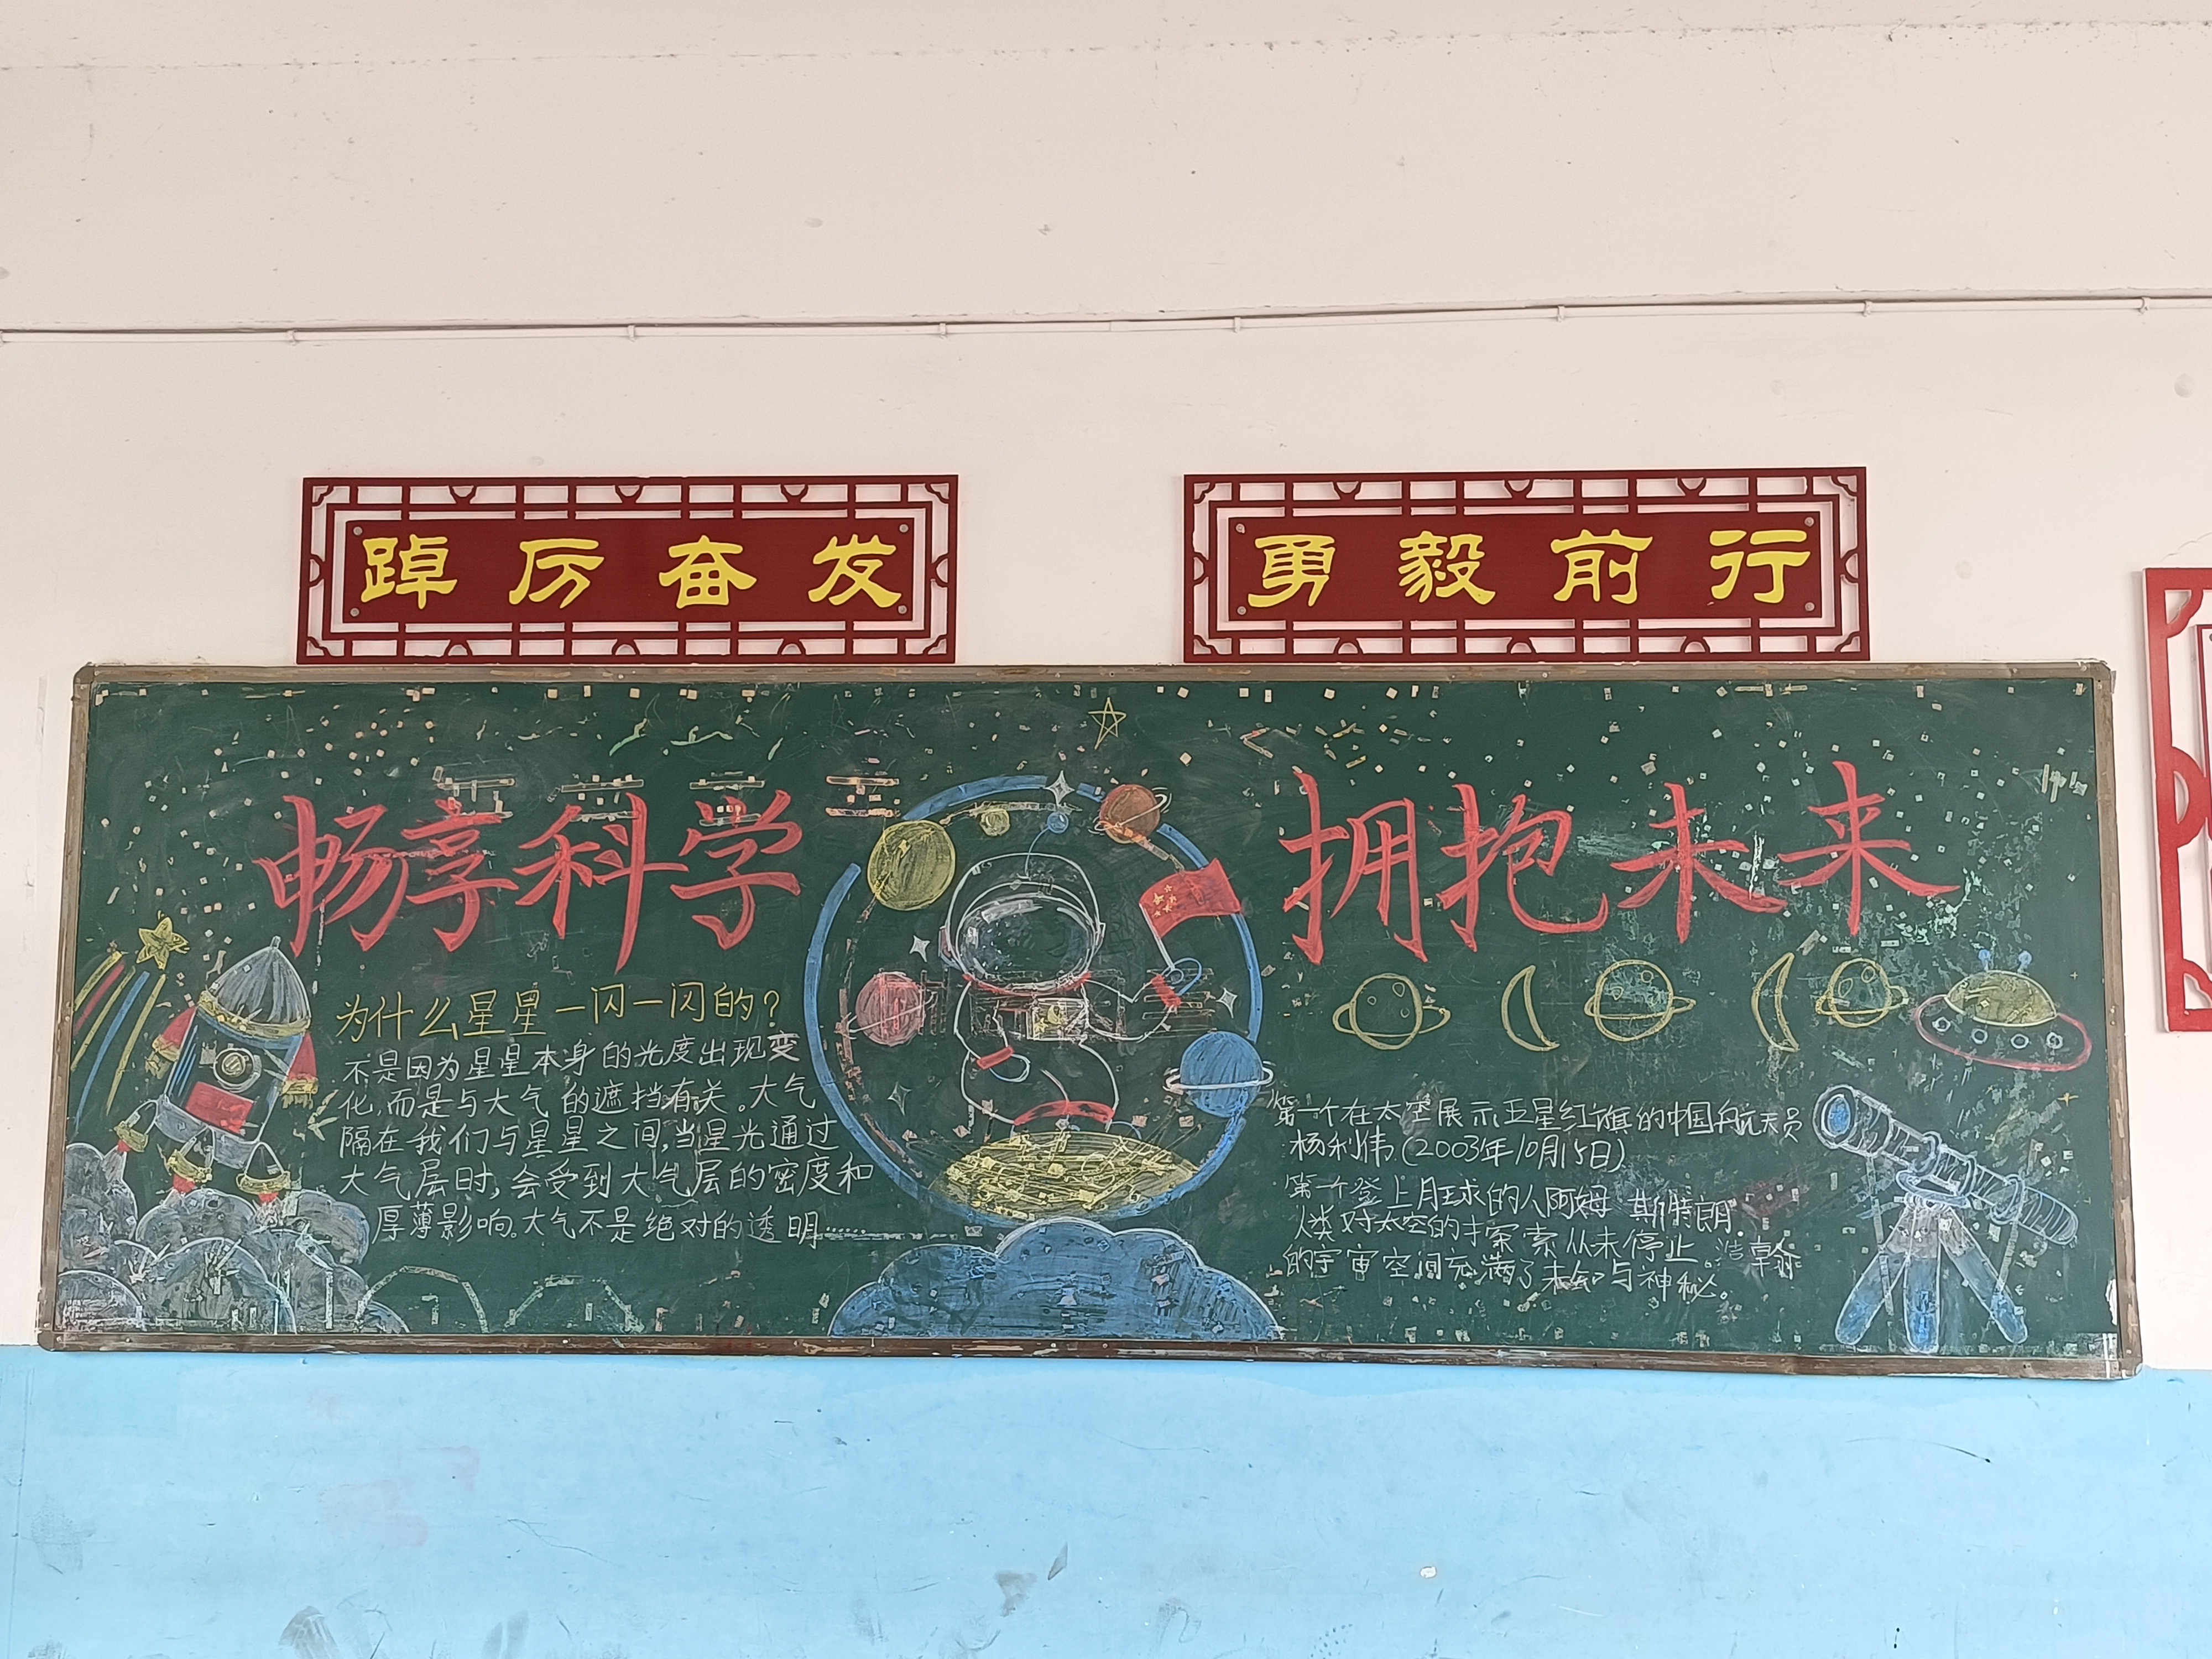 踔厉奋发
勇毅前行
畅享科学
拥抱未来
为什么星星一闪一闪的?
不是因为星星本身的光度出现变
化,而是与大气的遮挡有关。大气
隔在我们与星星之间,当星光通过
大气层时,会受到大气层的密度和
厚薄影响。大气不是绝对的透明……
第一个在太空展示五星红旗的中国航天员
杨利伟(2003年10月15日)
第一个登上月球的人阿姆 斯特朗
人类对太空的探索从未停止。浩瀚
的宇宙空间充满了未知与神秘。